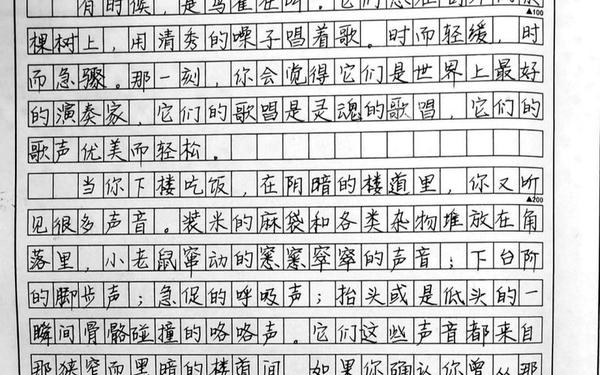 有的候，是鸟雀在叫。它们总在的
▲100
棵树上，用清秀的嗓子唱着歌。时而轻缓，时
而急骤。那一刻，你会觉得它们是世界上最好
的演奏家，它们的歌唱是灵魂的歌唱，它们的
歌声优美而轻松。
当你下楼吃饭，在阴暗的楼道里，你又听
▲200
见很多声音。装米的麻袋和各类杂物堆放在角
落里，小老鼠窜动的窸窸窣窣的声音；下台阶
的脚步声；急促的呼吸声；抬头或是低头的一
瞬间骨骼碰撞的咯咯声。它们这些声音都来自
那狭窄而黑暗的楼道间。如果你确认你曾从那